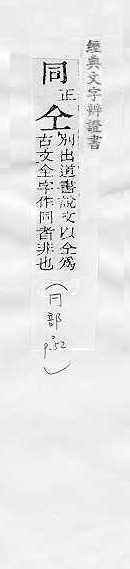 經典文字辨證書
同正
仝別出道書說文以仝為
古文全字作同者非也
(冂部
p.52)